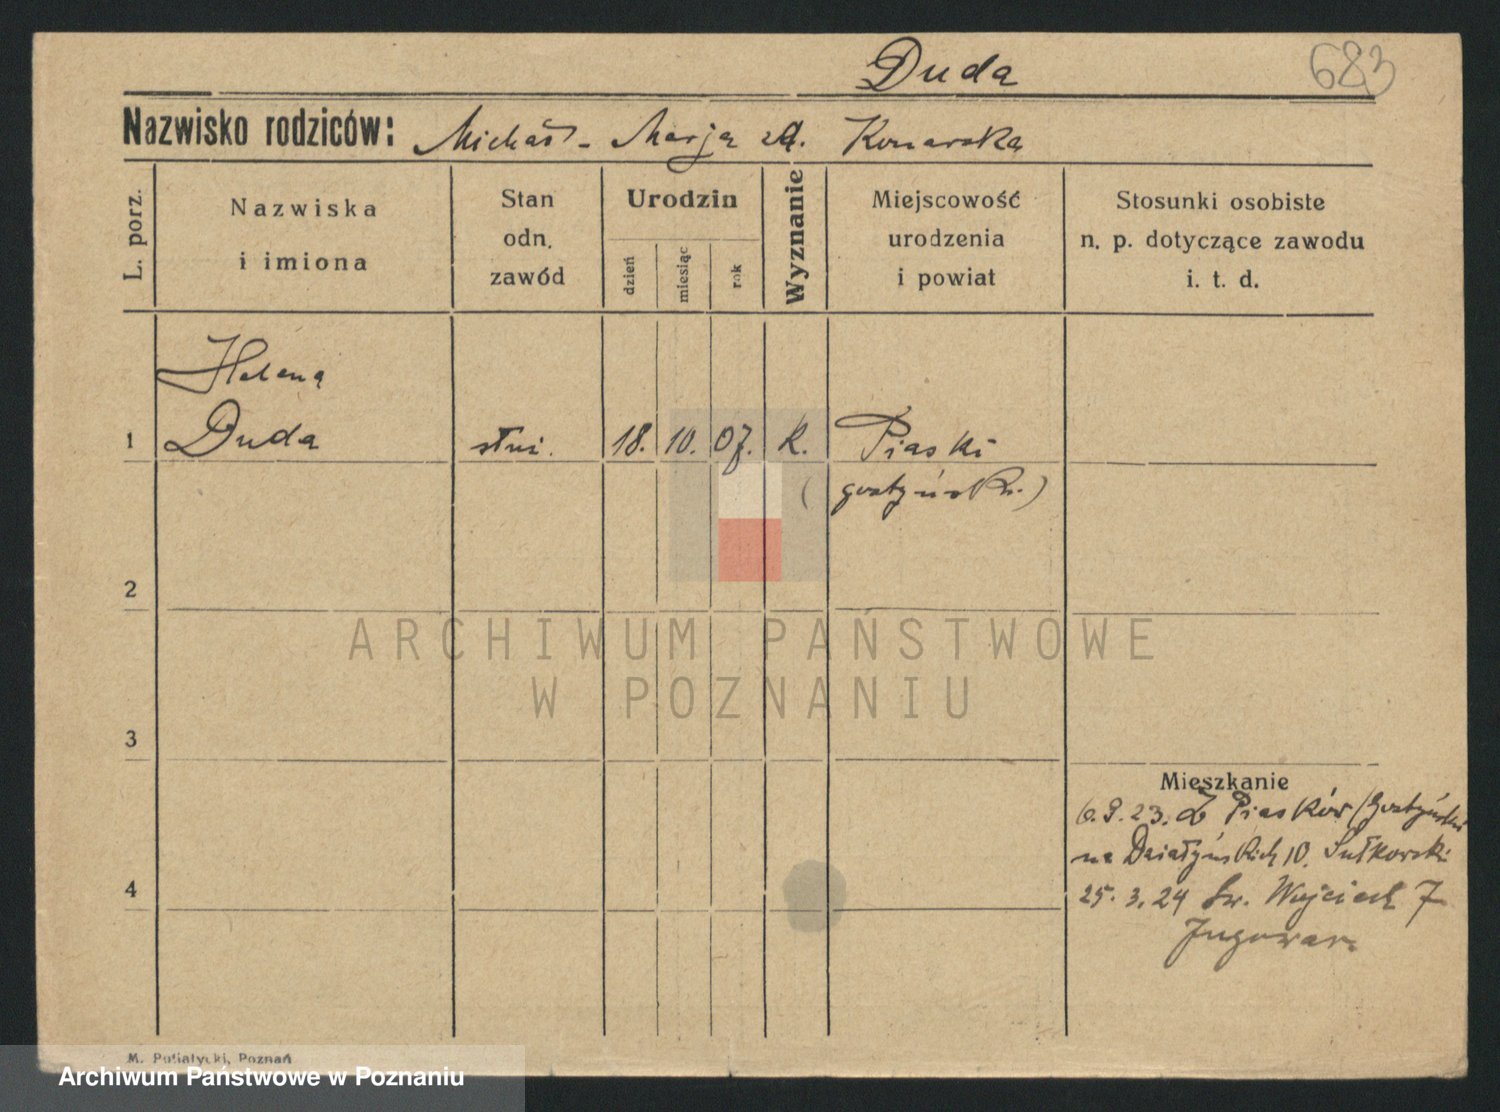 Duda
683
Nazwisko rodziców: Michał - Marja zd. Konarska
L. porz.
Nazwiska
i imiona
Stan
odn.
zawód
Urodzin
dzień
miesiąc
rok
Wyznanie
Miejscowość
urodzenia
i powiat
Stosunki osobiste
n. p. dotyczące zawodu
i. t. d.
Helena
1 Duda służ. 18. 10. 07. k. Piaski
(gostyńsk.)
2
ARCHIWUM PAŃSTWOWE
W POZNANIU
3
Mieszkanie
6.9.23. Z Piasków (Gostyński
na Działyńskich 10. Sułkowski
4
25.3.24 Św. Wojciech 7
M. Putiatycki, Poznań
Archiwum Państwowe w Poznaniu